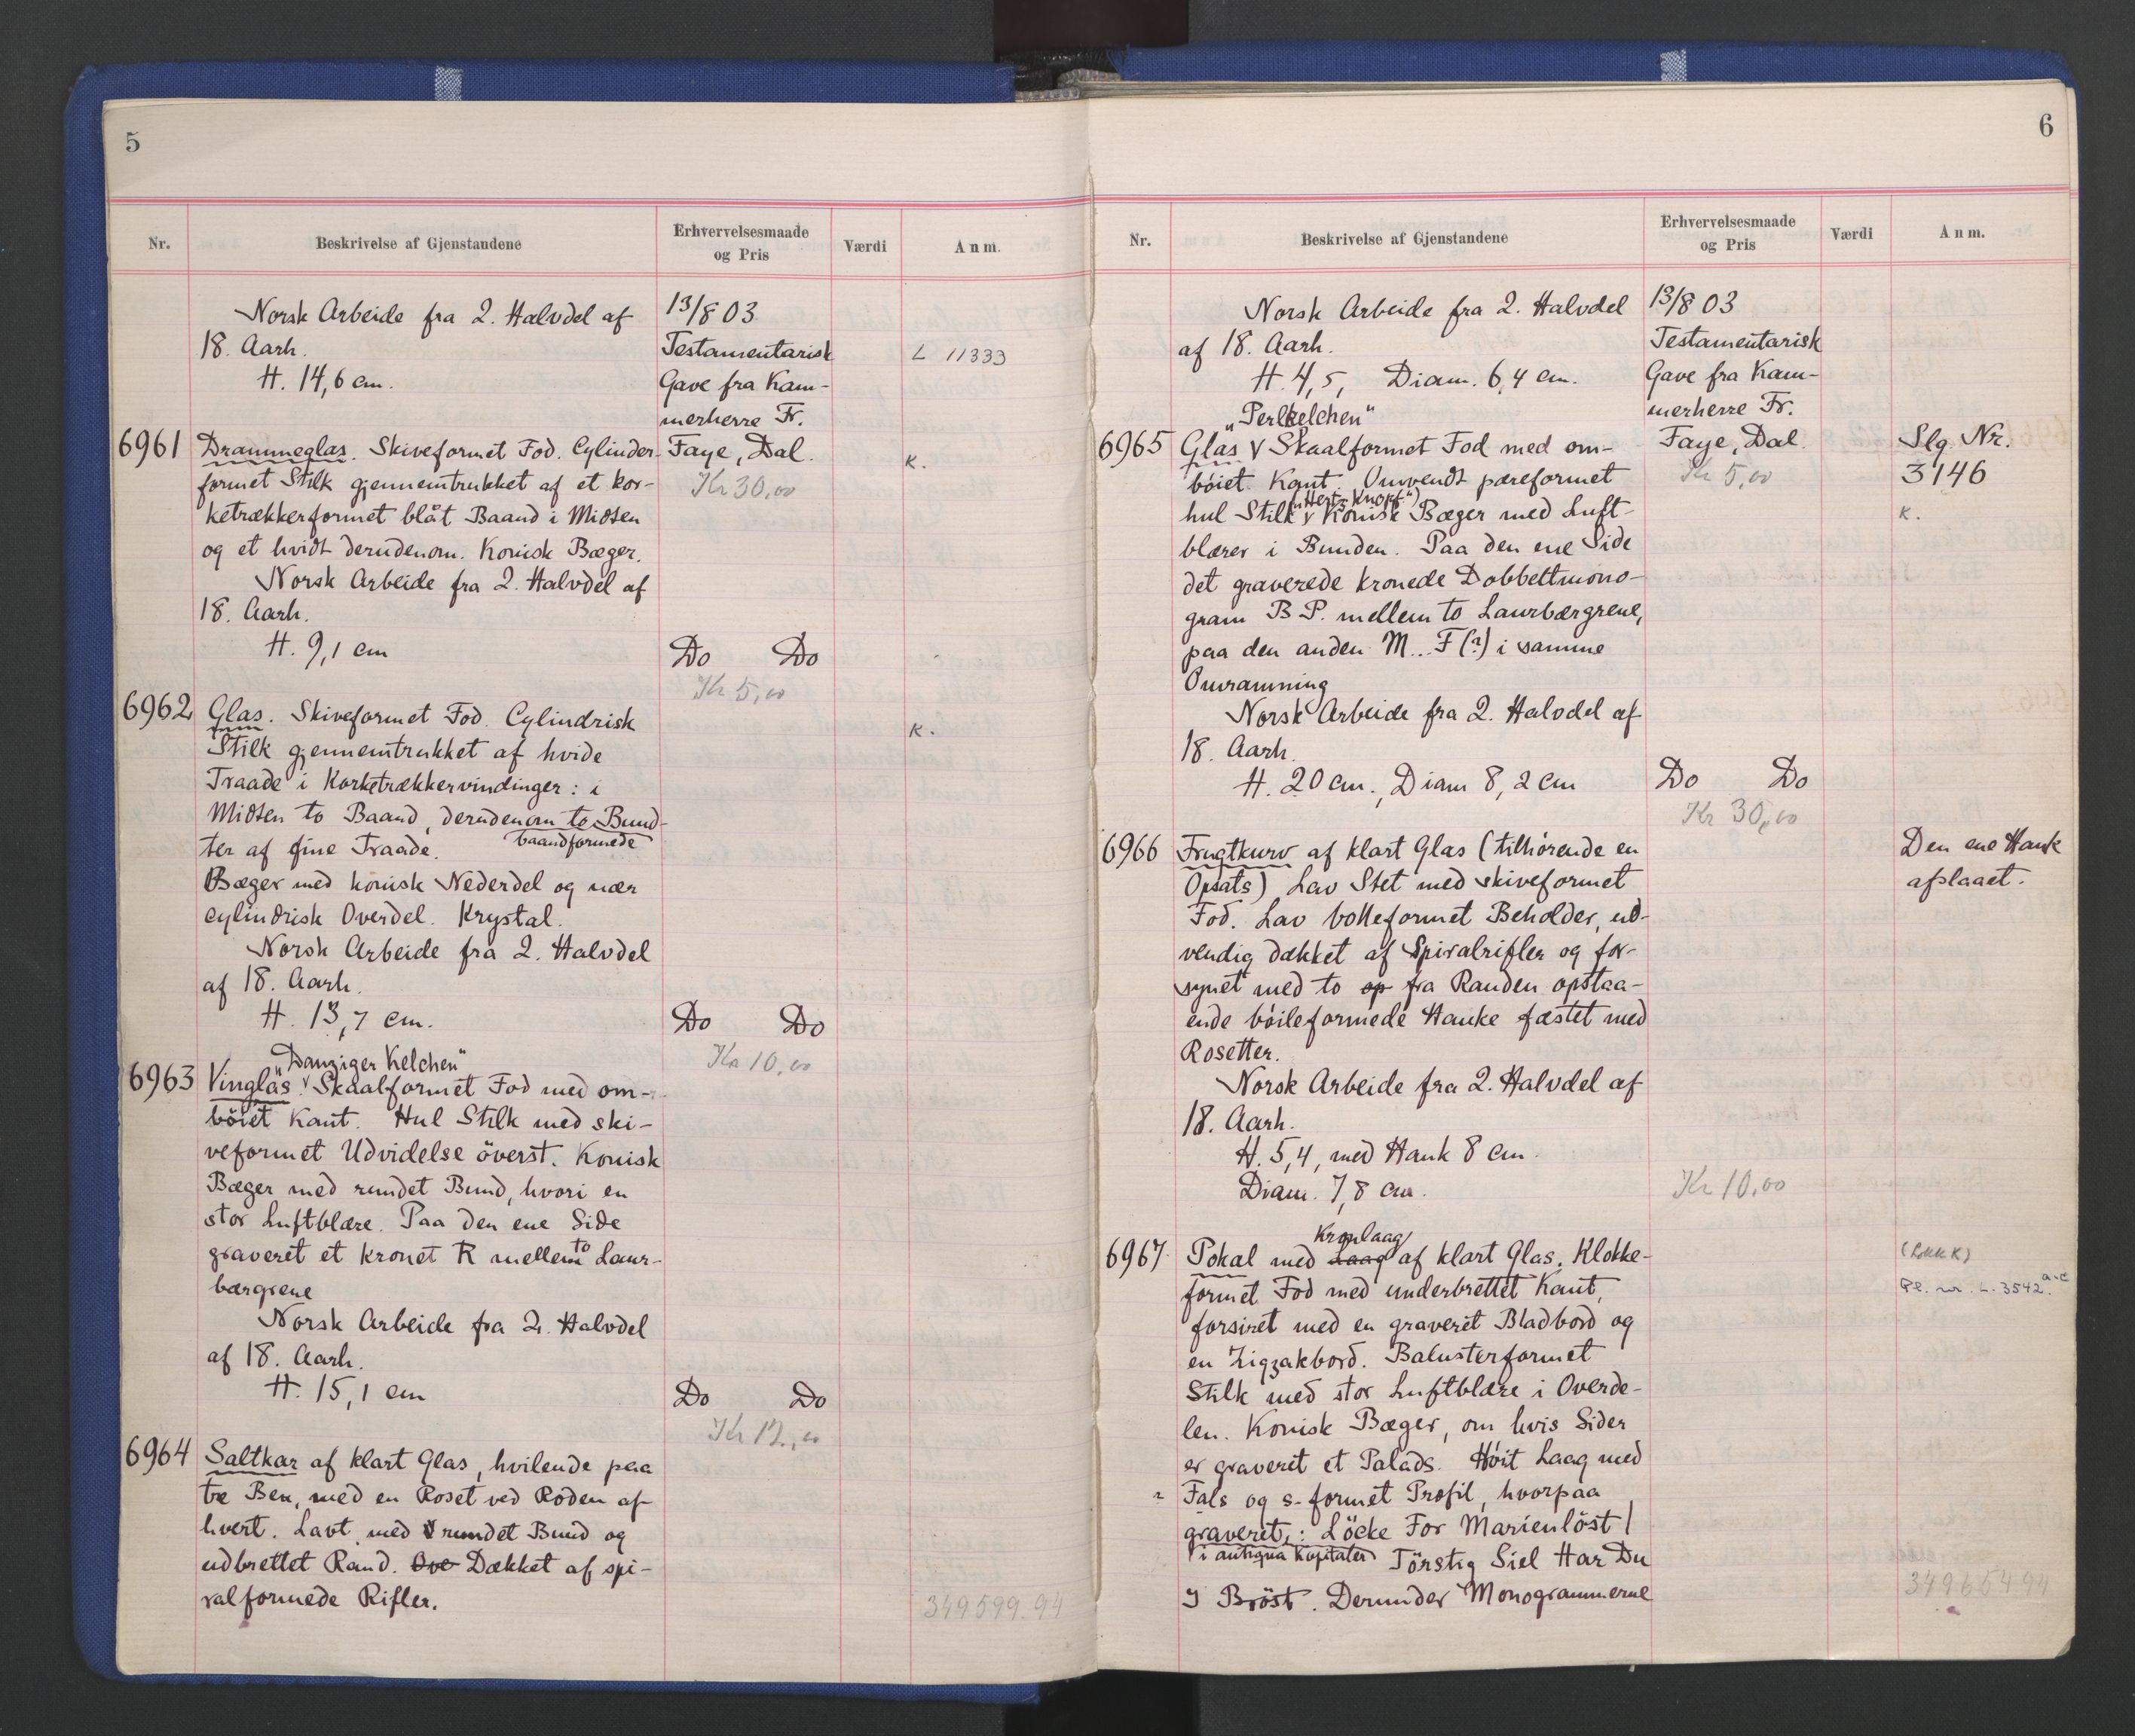 5
Nr.
Beskrivelse af Gjenstandene
Erhvervelsesmaade
og Pris
Værdi
Anm.
Norsk Arbeide fra 2. Halvdel af
18. Aarh.
H. 14,6 cm.
13/8 03
Testamentarisk
Gave fra Kam-
merherre Fr.
Faye, Dal.
Kr 30,00
L 11333
6961
Drammeglas. Skiveformet Fod. Cylinder-
formet Stilk gjennemtrukket af et kor-
ketrækkerformet blåt Baand i Midten
og et hvidt derudenom. Konisk Bæger.
Norsk Arbeide fra 2. Halvdel af
18. Aarh.
H. 9,1 cm
Do Do
Kr 5,00
K.
6962
Glas. Skiveformet Fod. Cylindrisk
Stilk gjennemtrukket af hvide
Traade i Korketrækkervindinger: i
Midten to Baand, derudenom to Bund-
baandformede
ter af fine Traade.
Bæger med konisk Nederdel og nær
cylindrisk Overdel. Krystal.
Norsk Arbeide fra 2. Halvdel
af 18. Aarh.
H. 13,7 cm.
Do Do
Kr 10,00
K.
6963
"Danziger Kelchen"
Vinglas. v Skaalformet Fod med om-
böiet Kant. Hul Stilk med ski-
veformet Udvidelse överst. Konisk
Bæger med rundet Bund, hvori en
stor Luftblære. Paa den ene Side
graveret et kronet R mellem to Laur-
bærgrene
Norsk Arbeide fra 2. Halvdel
af 18. Aarh.
H. 15,1 cm
Do Do
Kr 12,00
6964
Saltkar af klart Glas, hvilende paa
tre Ben, med en Roset ved Roden af
hvert. Lavt med rundet Bund og
udbrettet Rand. Ove Dækket af spi-
ralformede Rifler.
349599.94
6
Nr.
Beskrivelse af Gjenstandene
Erhvervelsesmaade
og Pris
Værdi
Anm.
Norsk Arbeide fra 2. Halvdel
af 18. Aarh.
H. 4,5, Diam. 6,4 cm.
13/8 03
Testamentarisk
Gave fra Kam-
merherre Fr.
Faye, Dal.
Kr 5,00
6965
"Perlkelchen"
Glas v Skaalformet Fod med om-
böiet Kant. Omvendt pæreformet
("Herts Knopf")
hul Stilk v Konisk Bæger med Luft-
blærer i Bunden. Paa den ene Side
det graverede kronede Dobbeltmono-
gram B P. mellem to Laurbærgrene,
paa den anden M... F (?) i samme
Omramning
Norsk Arbeide fra 2. Halvdel af
18. Aarh.
H. 20 cm., Diam 8,2 cm
Do Do
Kr 30,00
Slg. Nr.
3146
K.
6966
Frugtkurv af klart Glas (tilhörende en
Opsats) Lav Stet med skiveformet
Fod. Lav bolleformet Beholder, ud-
vendig dækket af Spiralrifler og for-
synet med to op fra Randen opstaa-
ende böileformede Hanke fæstet med
Rosetter.
Norsk Arbeide fra 2. Halvdel af
18. Aarh.
H. 5,4, med Hank 8 cm
Diam. 7,8 cm.
Kr 10,00
Den ene Hank
afslaaet.
6967
Kronlaag
Pokal med Laag af klart Glas. Klokke-
formet Fod med underbrettet Kant,
forsiret med en graveret Bladbord og
en Zigzakbord. Balusterformet
Stilk med stor Luftblære i Overde-
len. Konisk Bæger, om hvis Sider
er graveret et Palads. Höit Laag med
Fals og s-formet Profil, hvorpaa
graveret,: Löcke For Marienlöst /
i antiqua Kapitaler
Törstig Siel Har Du
I Bröst. Derunder Monogrammerne
Pl. nr. L. 3542 a-c
349654.94